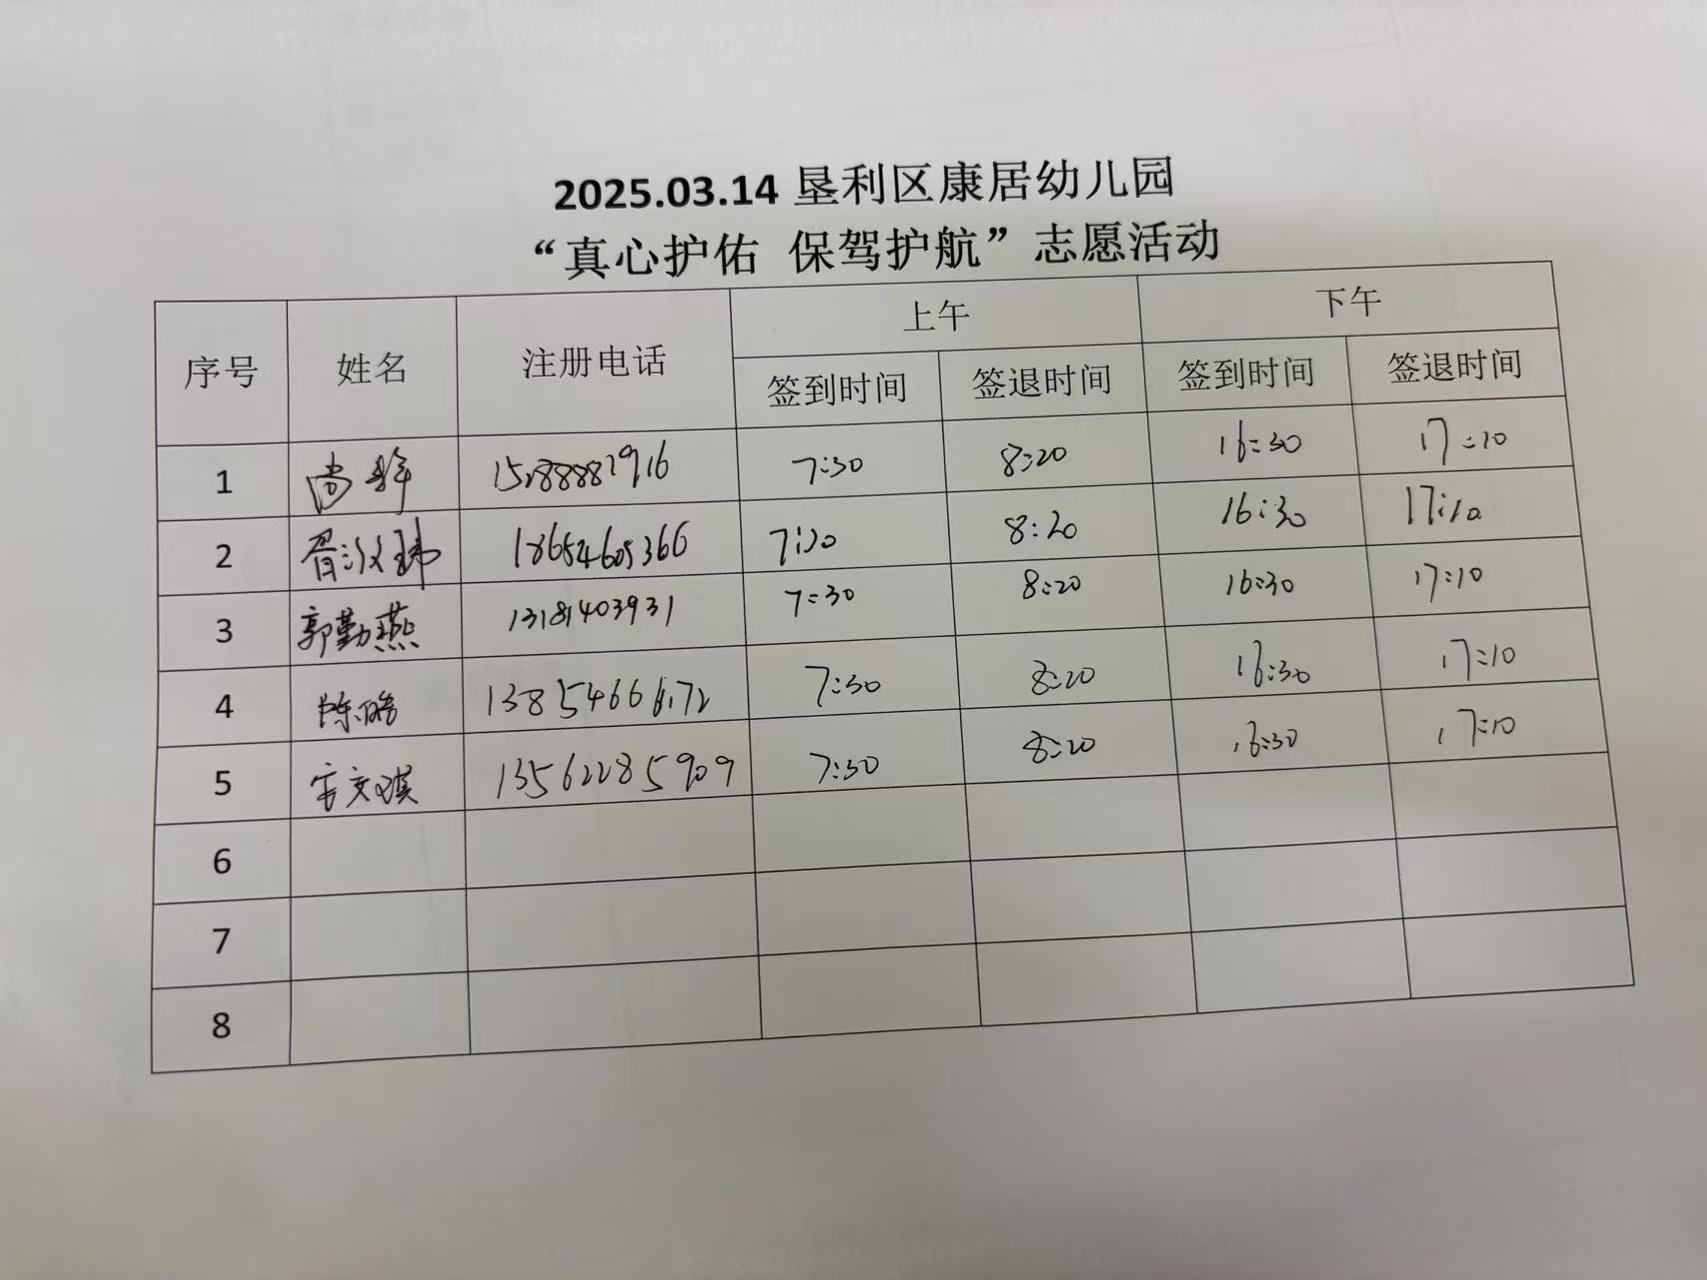 2025.03.14 垦利区康居幼儿园
“真心护佑 保驾护航”志愿活动
序号 姓名 注册电话 上午 下午
签到时间 签退时间 签到时间 签退时间
1 尚 7:30 8:20 16:30 17:10
2 胥汶玮 18654605366 7:30 8:20 16:30 17:10
3 郭勤燕 13181403931 7:30 8:20 16:30 17:10
4 陈 13854666172 7:30 8:20 16:30 17:10
5 文琪 13562285909 7:30 8:20 16:30 17:10
6
7
8